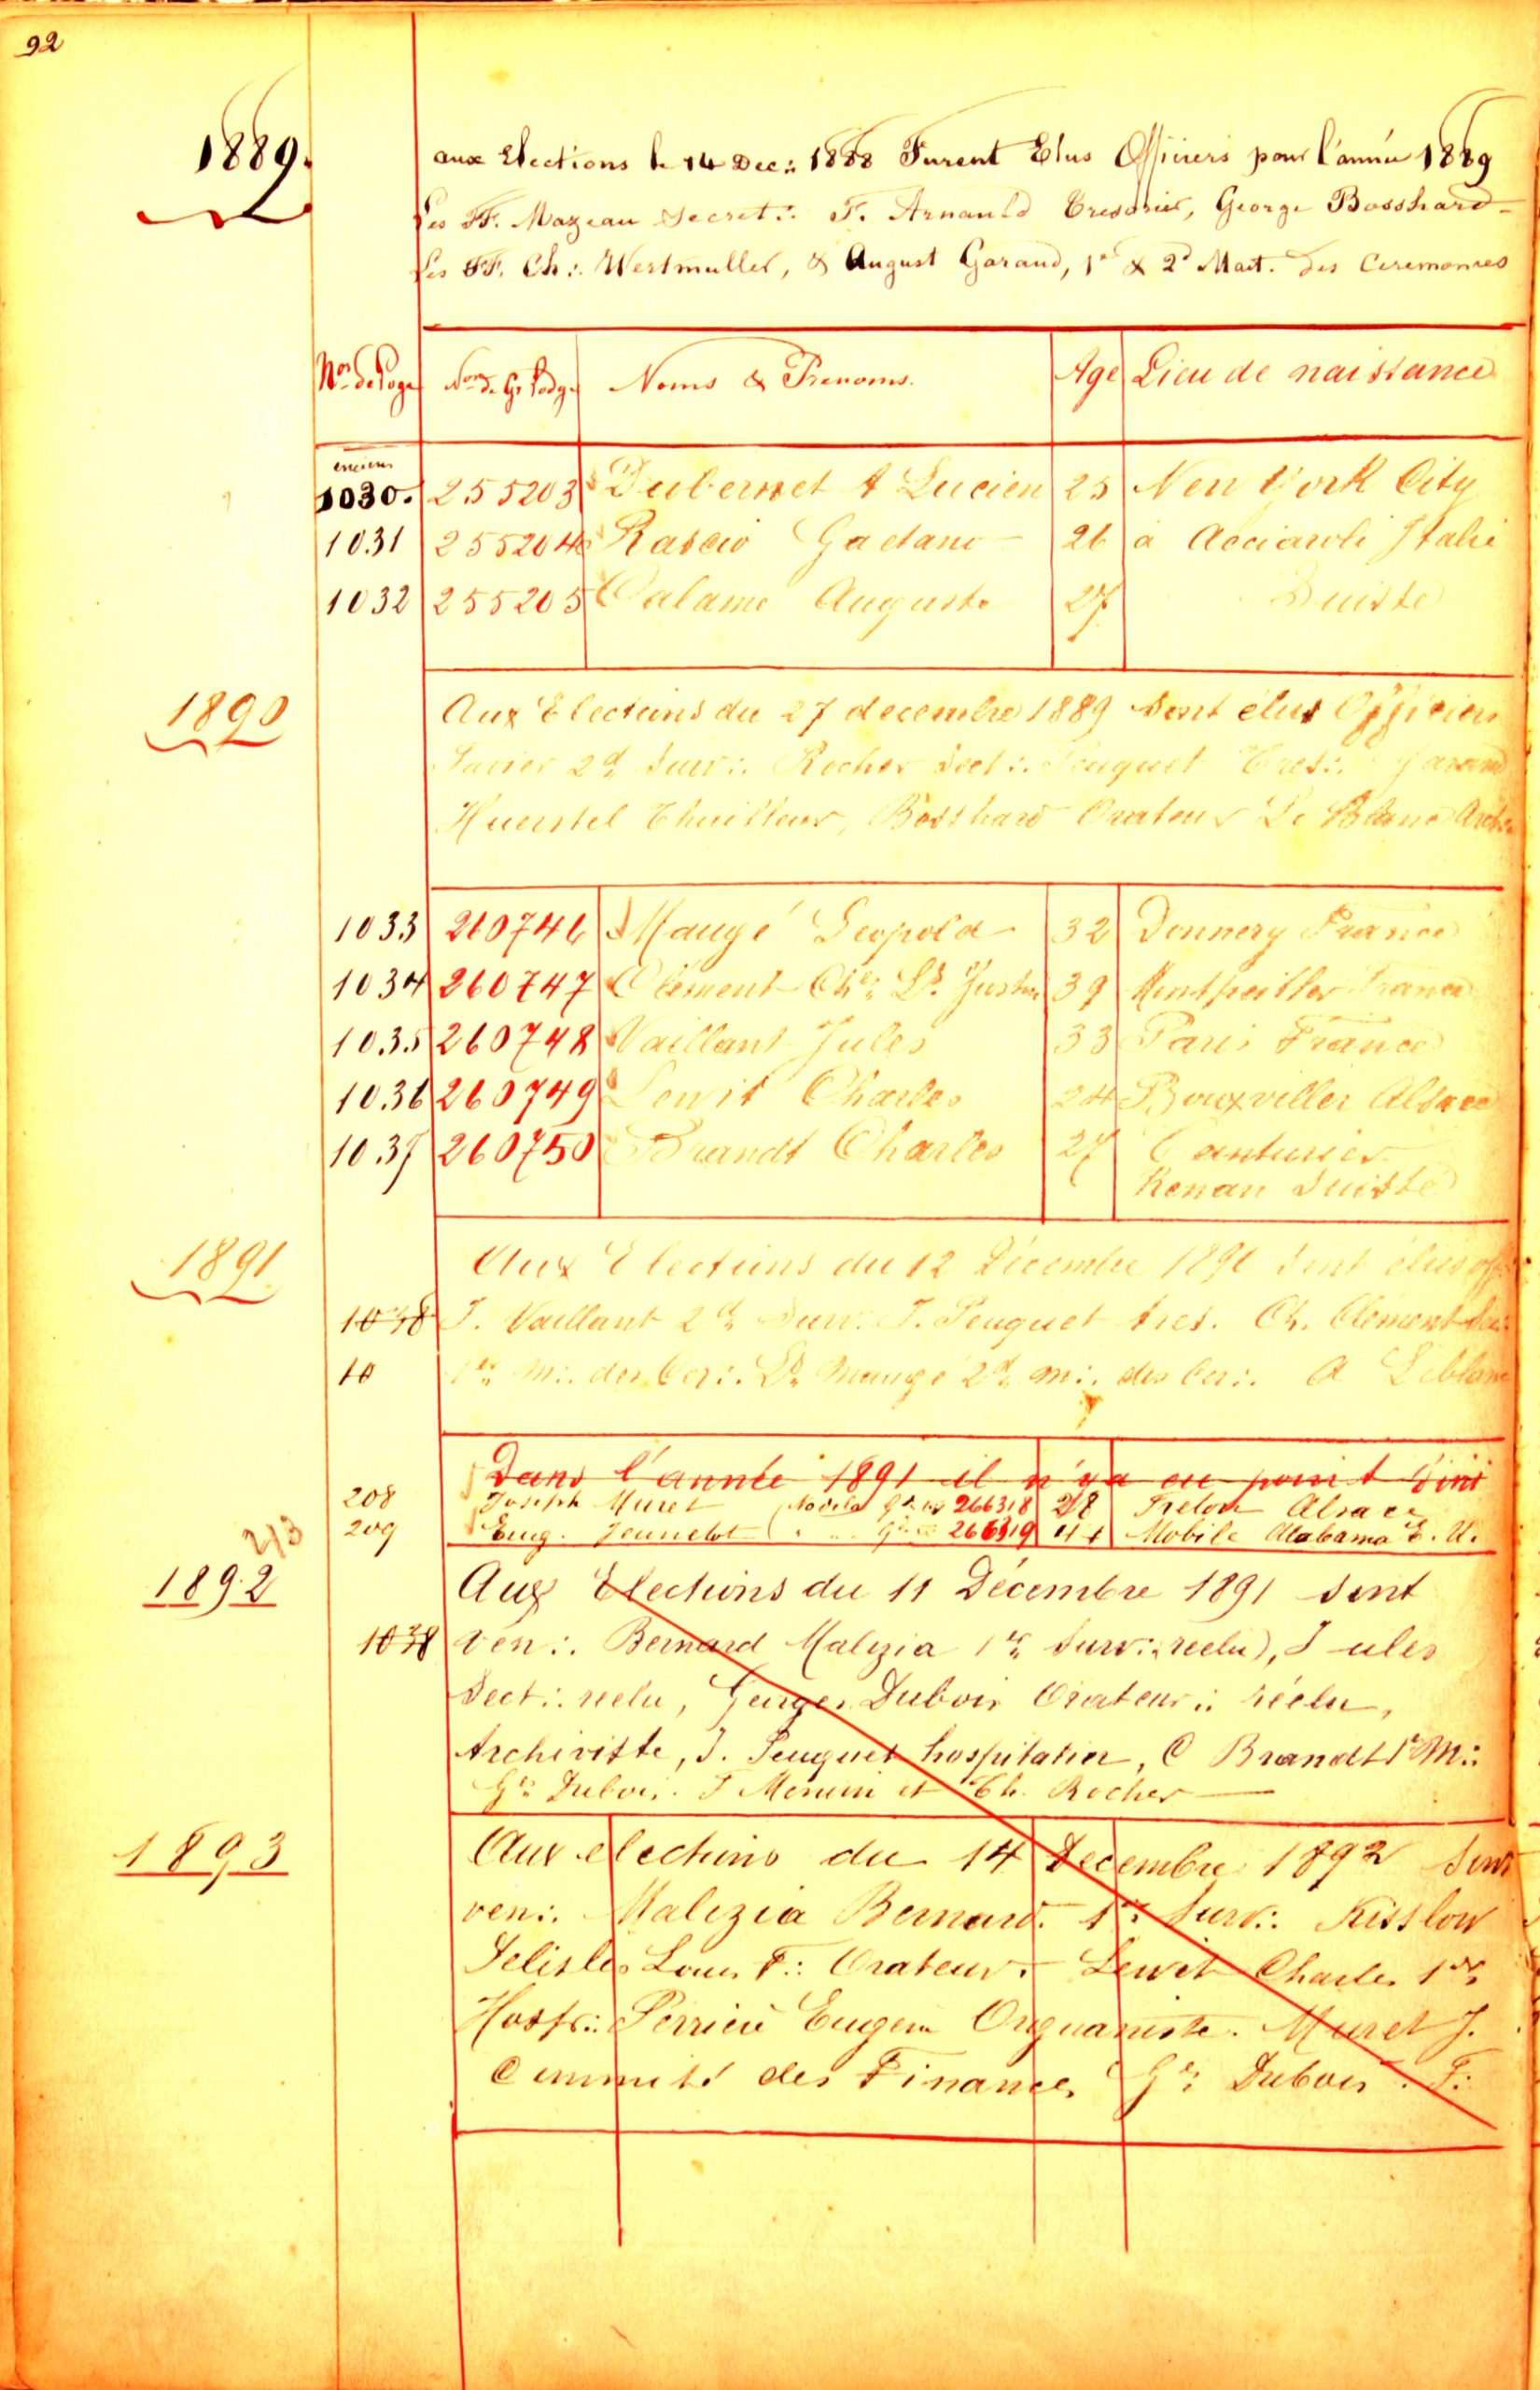 92
1889.
aux Elections le 14 Dec:. 1888 Furent Elus Officiers pour l'année 1889
Les FF. Mazeau Secret:. F. Arnauld Tresorier, George Bosshard
Les FF. Ch:. Westmuller, & August Garaud, 1er & 2d Mait. des Ceremonies
Nos de Loge Nos de Gr Lodge Noms & Prenoms. Age Lieu de naissance
anciens
1030. 255203 Dubernet A Lucien 25 New York City
1031 255204 Rascio Gaetano 26 à Acciaroli Italie
1032 255205 Calame Auguste 27 Suisse
1890
Aux Elections du 27 decembre 1889 sont élus Officiers
2d Surv:. Rocher Sect:. Peuquet Tres:. Garaud
Huerstel Thuilleur, Bosshard Orateur Le Blanc
1033 260746 Maugé Leopold 32 Donnery France
1034 260747 Clément Ch:. Ls. 39 Montpellier France
1035 260748 Vaillant Jules 33 Paris France
1036 260749 Lewit Charles 24 Bouxviller Alsace
1037 260750 Brandt Charles 27
Renan Suisse
1891
Aux Elections du 12 Décembre 1890 sont élus off
1038 J. Vaillant 2d Surv. J. Peuquet tres. Ch. Clement
10 1er M:. des Cer:. Ls Maugé 2d m:. des Cer:. A Leblanc
Dans l'année 1891 il n'ya eu point d'ini
208 Joseph Muret 266318 28 Alsace
209 Eug. Jeunelot 266319 44 Mobile Alabama E. U.
213
1892
Aux Elections du 11 Décembre 1891 sont
1038 Ven:. Bernard Malezia 1er Surv:. reelu), Jules
Sect:. reelu, Georges Dubois Orateur:. réélu,
Archiviste, J. Peuquet hospitalier, C Brandt 1er M:.
Gs Dubois. J Menuni et Ch. Rocher
1893
Aux elections du 14 Decembre 1892 sont
ven:. Malezia Bernard. 1er Surv:. Kisslow
Delisle Louis F:. Orateur. Lewit Charles 1er
Hosp:. Perrieu Eugene Organiste. Muret J.
Committé des Finances Gs Dubois. F:.